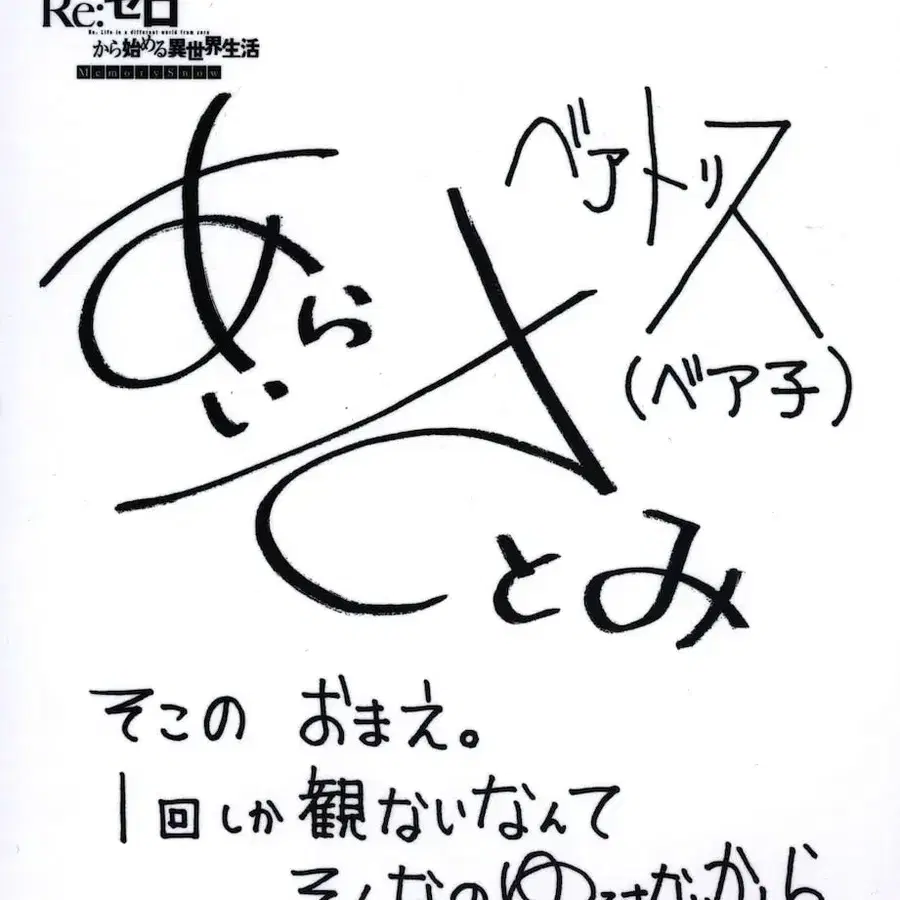 Re:ゼロ
Re: Life in a different world from zero
から始める異世界生活
Memory Snow
ベアトリス
(ベア子)
あらい
さとみ
そこの おまえ。
1回しか観ないなんて
そんなの ゆるさないから